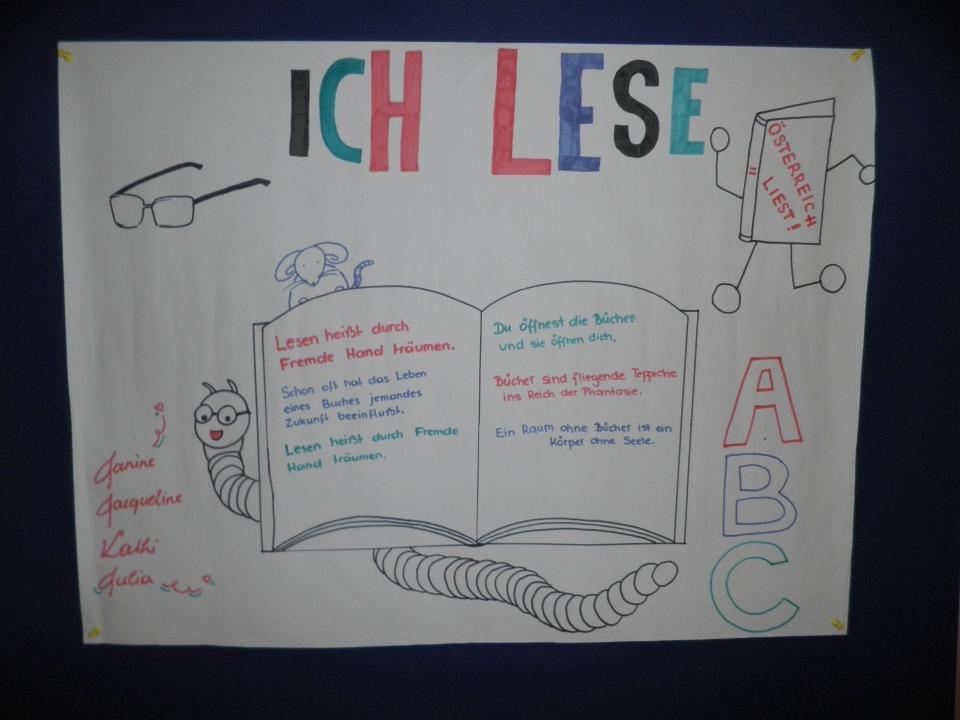 ICH LESE
ÖSTERREICH
LIEST!
Lesen heißt durch
Fremde Hand träumen.
Schon oft hat das Leben
eines Buches jemandes
Zukunft beeinflußt.
Lesen heißt durch Fremde
Hand träumen.
Du öffnest die Bücher
und sie öffnen dich.
Bücher sind fliegende Teppiche
ins Reich der Phantasie.
Ein Raum ohne Bücher ist ein
Körper ohne Seele.
Janine
Jacqueline
Kathi
Julia
A
B
C